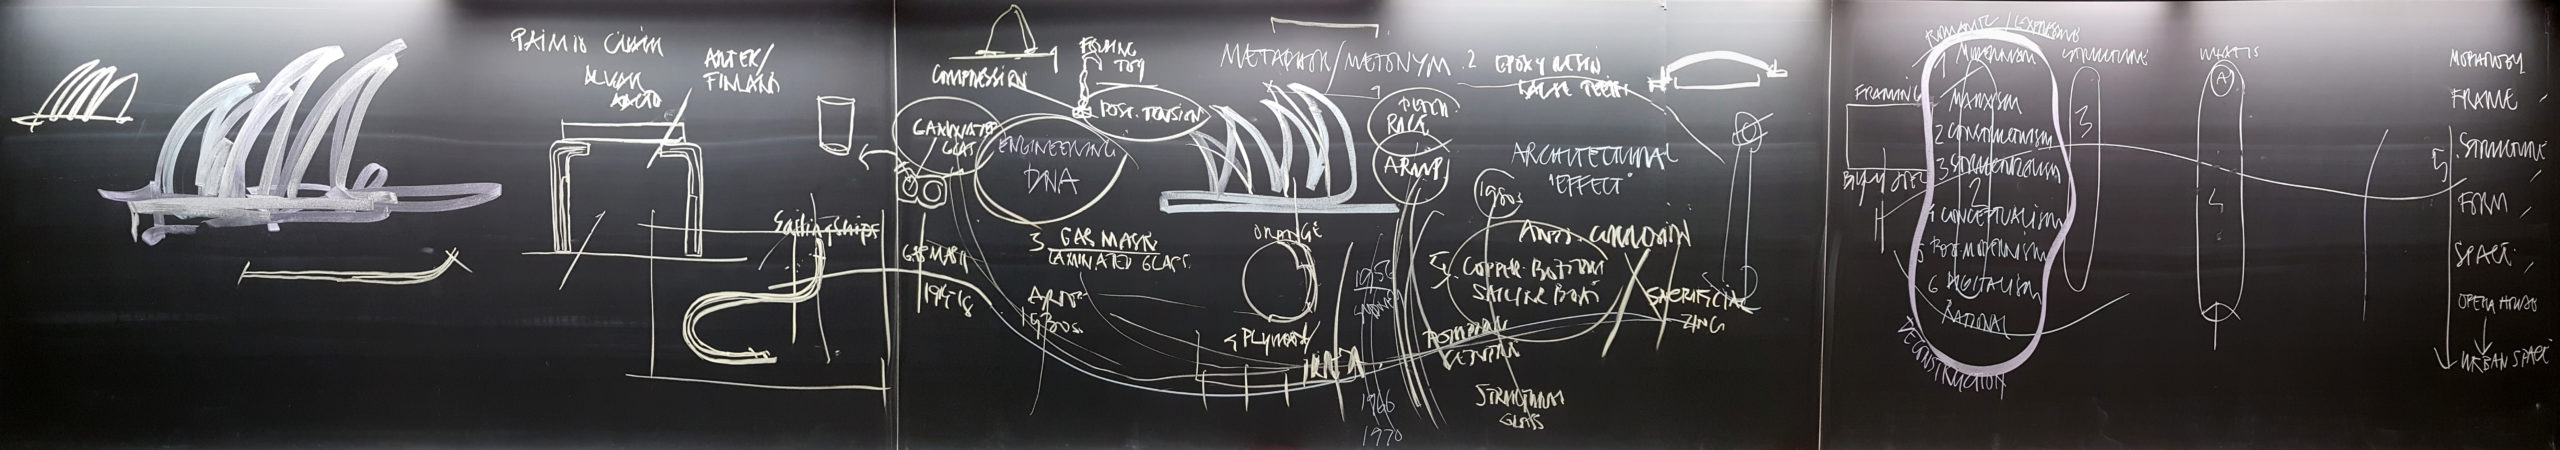 PAIMIO CHAIR
ALVAR
AALTO
ARTEK/
FINLAND
Sailing ships
COMPRESSION
FISHING
TOY
POST. TENSION
LAMINATED
GLASS
ENGINEERING
DNA
GAS MASK
1914-18
3. GAS MASK
LAMINATED GLASS
ARUP
1930s.
METAPHOR/METONYM
ORANGE
4 PLYWOOD
1956
SYDNEY
1966
1970
.2 EPOXY RESIN
FALSE TEETH
PETER
RICE
ARUP
ARCHITECTURAL
"EFFECT"
1980s
ANTI. CORROSION
5. COPPER BOTTOM
SAILING BOAT
SACRIFICIAL
ZINC
POMPIDOU
CENTRE
STRUCTURAL
GLASS
FRAMING
ROMANTIC/EXPRESS
1 MODERNISM
MARXISM
2 CONSTRUCTIVISM
3 STRUCTURALISM
2
4 CONCEPTUALISM
5 POSTMODERNISM
6 DIGITALISM
RATIONAL
DECONSTRUCTION
STRUCTURE
3
WHAT IS
A
4
METAPHOR
FRAME
5 STRUCTURE
FORM
SPACE
OPERA HOUSE
URBAN SPACE